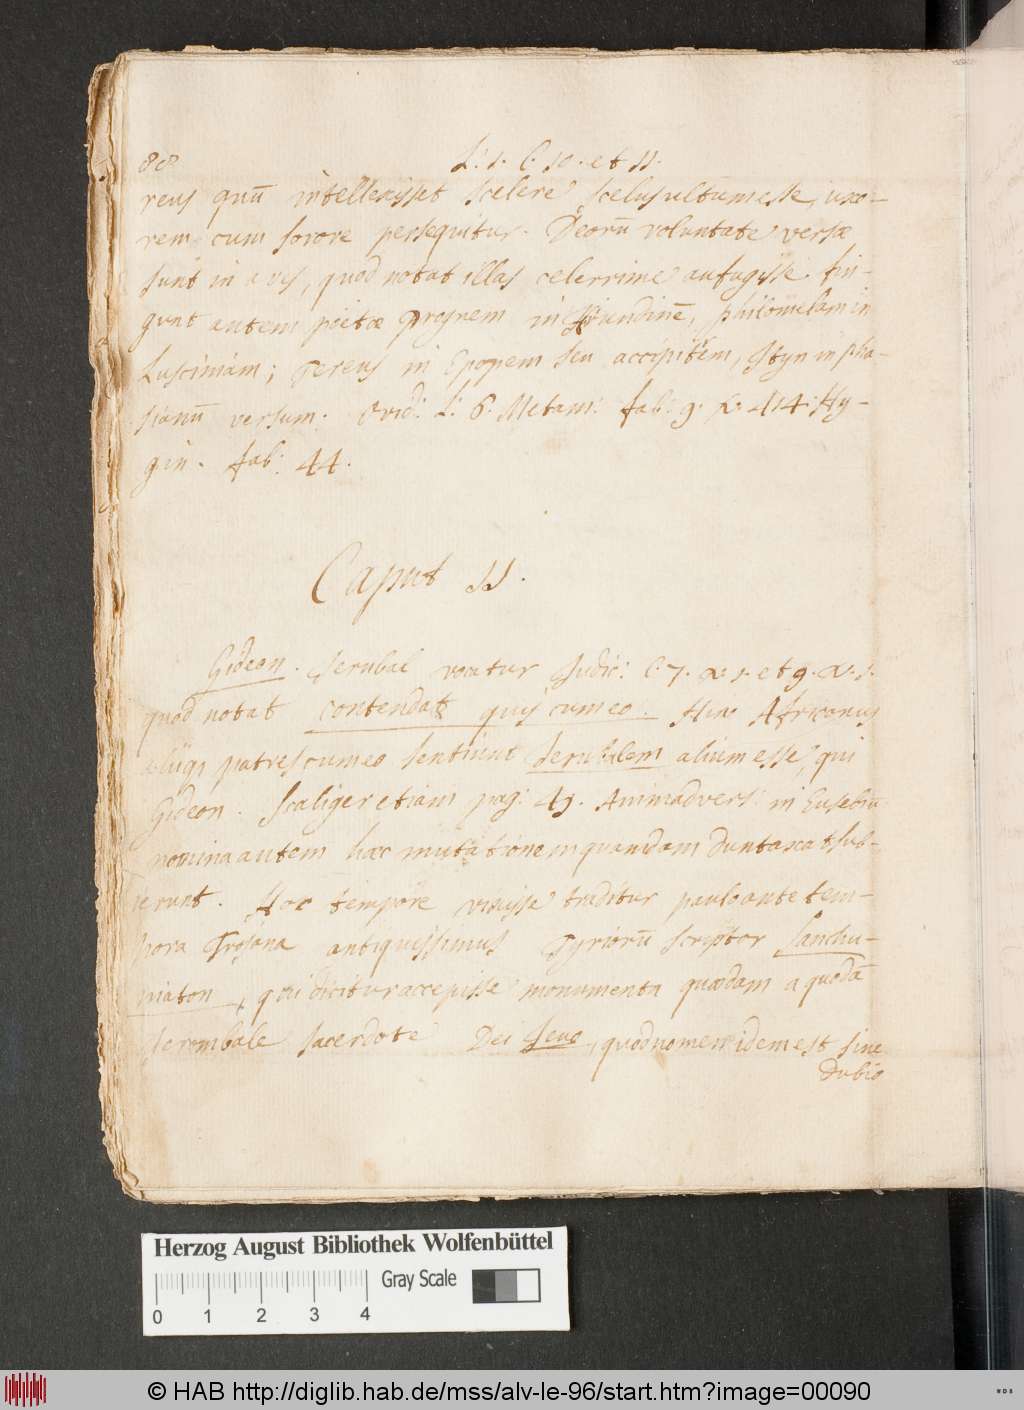 88 L: 1. C. 10. et 11.
reus quū intellexisset scelere scelus ultum esse, uxo-
rem cum sorore persequitur. Deorū voluntate versæ
sunt in aves, quod notat illas celerrime aufugisse. fin-
gunt autem poëtæ Prognem in Hirundinē, Philomelam in
Lusciniam; Tereus in Epopem seu accipitrem, Ityn in pha-
sianū versum. Ovid: L: 6. Metam: fab: 9. v. 414. Hy-
gin. fab: 44.
Caput 11.
Gideon. Jerubal vocatur Judic: C 7. v. 1. et 9. v. 1.
quod notat contendat quis cum eo. Hinc Africanus
aliiqꝫ patres cum eo sentiunt Jerubalem alium esse, qui
Gideon. Scaliger etiam pag: 49. Animadvers: in Eusebiū
nomina autem hæc mutationem quandam duntaxat sub-
ierunt. Hoc tempore vixisse traditur paulo ante tem-
pora Trojana antiquissimus Tyriorū scriptor Sanchu-
niaton, qui dicitur accepisse monumenta quædam a quodā
Jerombale sacerdote Dei Jeuo, quod nomen idem est sine
dubio
Herzog August Bibliothek Wolfenbüttel
Gray Scale
0 1 2 3 4
© HAB http://diglib.hab.de/mss/alv-le-96/start.htm?image=00090